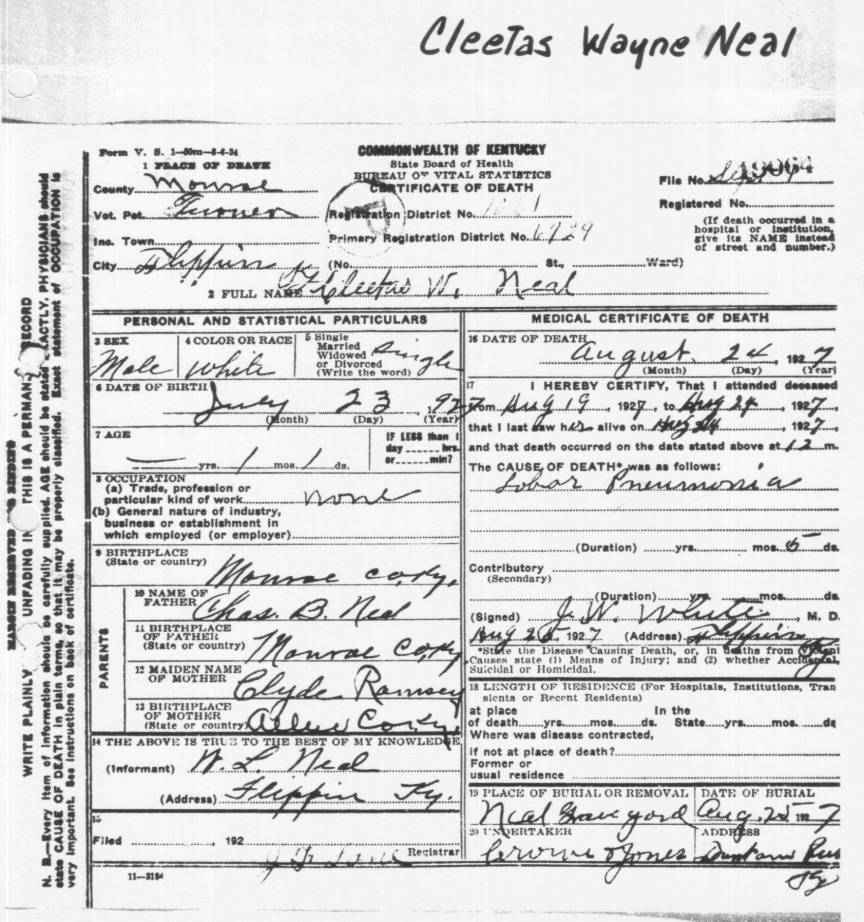 Cleetas Wayne Neal
Form V. S. 1—50m—8-6-24
COMMONWEALTH OF KENTUCKY
State Board of Health
BUREAU OF VITAL STATISTICS
CERTIFICATE OF DEATH
1 PLACE OF DEATH
County Monroe
Vot. Pct. Turner
Inc. Town
City Flippin Ky
Registration District No.
Primary Registration District No. 6929
(No. St., Ward)
File No. 19064
Registered No.
(If death occurred in a
hospital or institution,
give its NAME instead
of street and number.)
2 FULL NAME Cleetas W. Neal
PERSONAL AND STATISTICAL PARTICULARS
3 SEX
Male
4 COLOR OR RACE
White
5 Single
Married
Widowed
or Divorced
(Write the word)
Single
6 DATE OF BIRTH
July 23, 1927
(Month) (Day) (Year)
7 AGE
— yrs. 1 mos. 1 ds.
IF LESS than 1
day hrs.
or min?
8 OCCUPATION
(a) Trade, profession or
particular kind of work none
(b) General nature of industry,
business or establishment in
which employed (or employer)
9 BIRTHPLACE
(State or country)
Monroe Co. Ky.
PARENTS
10 NAME OF
FATHER
Chas. B. Neal
11 BIRTHPLACE
OF FATHER
(State or country)
Monroe Co Ky
12 MAIDEN NAME
OF MOTHER
Clyde Ramsey
13 BIRTHPLACE
OF MOTHER
(State or country)
Allen Co Ky
14 THE ABOVE IS TRUE TO THE BEST OF MY KNOWLEDGE
(Informant) W. L. Neal
(Address) Flippin Ky.
15
Filed , 192
Registrar
11—3184
MEDICAL CERTIFICATE OF DEATH
16 DATE OF DEATH
August 24 1927
(Month) (Day) (Year)
17 I HEREBY CERTIFY, That I attended deceased
from Aug 19, 1927, to Aug 24, 1927,
that I last saw h alive on Aug 24, 1927,
and that death occurred on the date stated above at 12 m.
The CAUSE OF DEATH* was as follows:
Lobar Pneumonia
(Duration) yrs. mos. 5 ds.
Contributory
(Secondary)
(Duration) yrs. mos. ds.
(Signed) J. W. White, M. D.
Aug 25, 1927 (Address) Flippin Ky
*State the Disease Causing Death, or, in deaths from Violent
Causes state (1) Means of Injury; and (2) whether Accidental,
Suicidal or Homicidal.
18 LENGTH OF RESIDENCE (For Hospitals, Institutions, Tran
sients or Recent Residents)
at place In the
of death yrs. mos. ds. State yrs. mos. ds
Where was disease contracted,
if not at place of death?
Former or
usual residence
19 PLACE OF BURIAL OR REMOVAL
Neal Grave yard
DATE OF BURIAL
Aug. 25 1927
20 UNDERTAKER
Jones
ADDRESS
Ky
MARGIN RESERVED FOR BINDING
WRITE PLAINLY UNFADING IN THIS IS A PERMAN RECORD
N. B.—Every item of information should be carefully supplied. AGE should be stated EXACTLY. PHYSICIANS should
state CAUSE OF DEATH in plain terms, so that it may be properly classified. Exact statement of OCCUPATION is
very important. See instructions on back of certificate.